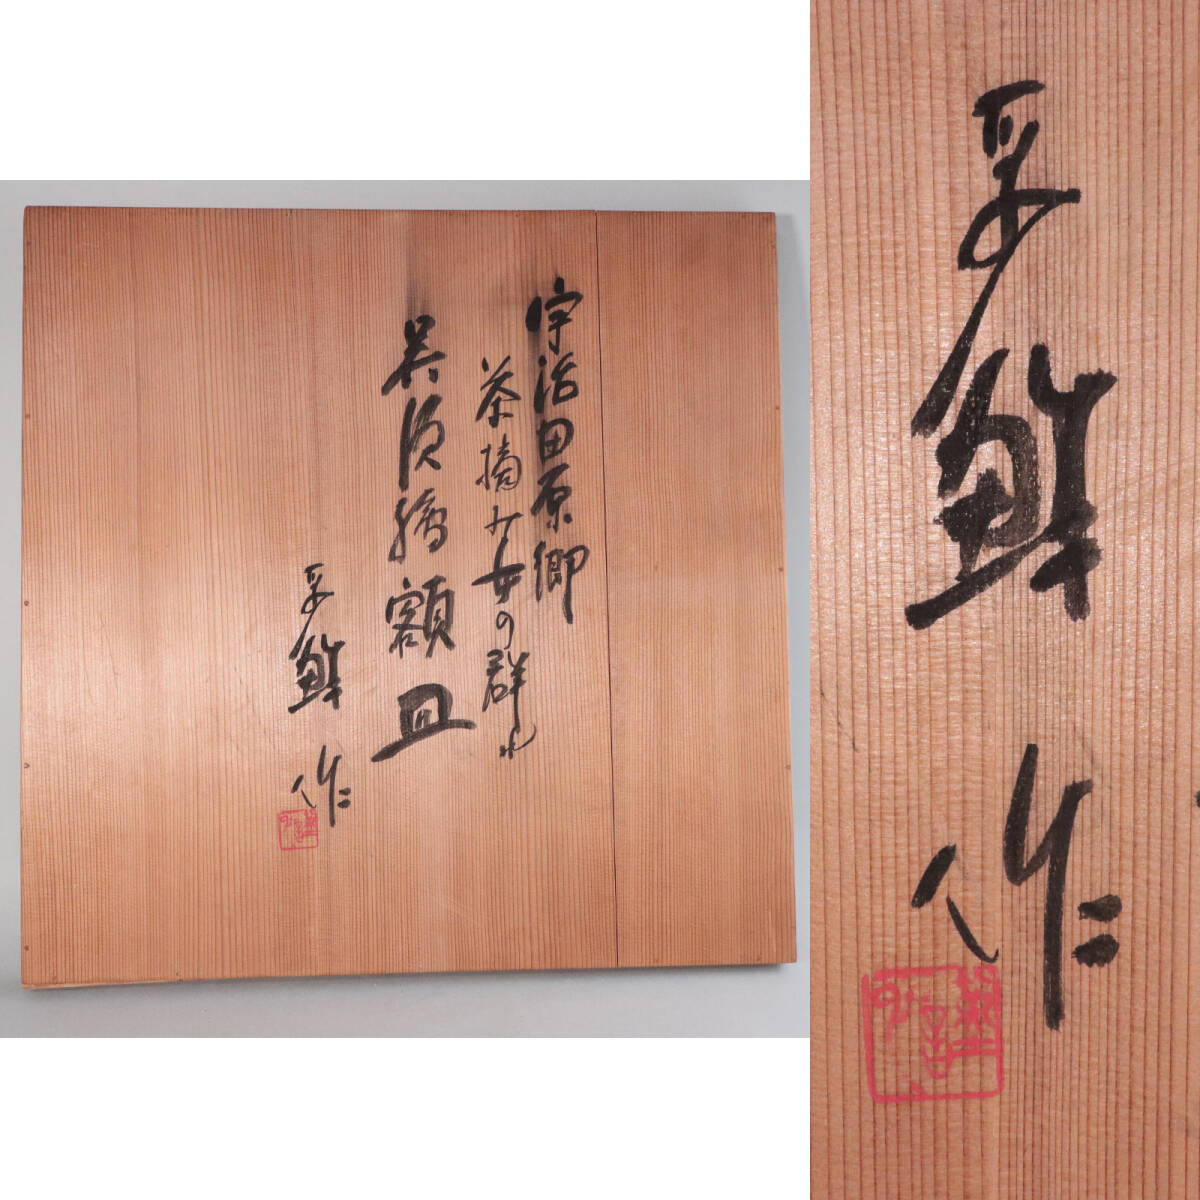 宇治田原郷
茶摘み女の群れ
呉須繪額皿
孚鮮作
孚鮮作